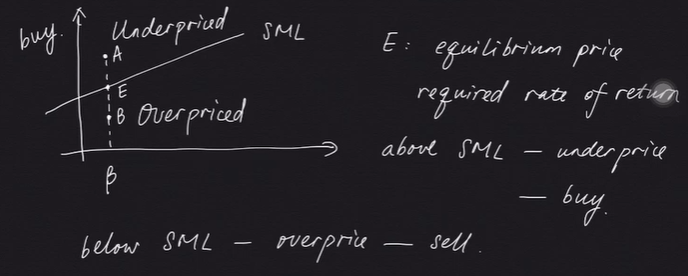 buy.
Underpriced
A
SML
E
B Overpriced
β
E: equilibrium price
required rate of return
above SML — underprice
— buy.
below SML — overprice — sell.